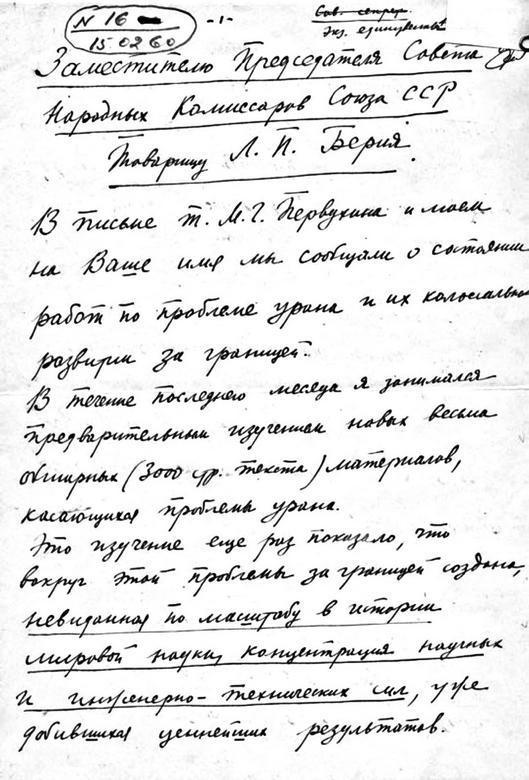 N 16
15.02.60
-1-
Сов. секрет.
Экз. единственный
Заместителю Председателя Совета
Народных Комиссаров Союза ССР
Товарищу Л. П. Берия.
В письме т. М.Г. Первухина и моем
на Ваше имя мы сообщали о состоянии
работ по проблеме урана и их колоссальном
развитии за границей.
В течение последнего месяца я занимался
предварительным изучением новых весьма
обширных (3000 стр. текста) материалов,
касающихся проблемы урана.
Это изучение еще раз показало, что
вокруг этой проблемы за границей создана,
невиданная по масштабу в истории
мировой науки, концентрация научных
и инженерно-технических сил, уже
добившихся ценнейших результатов.